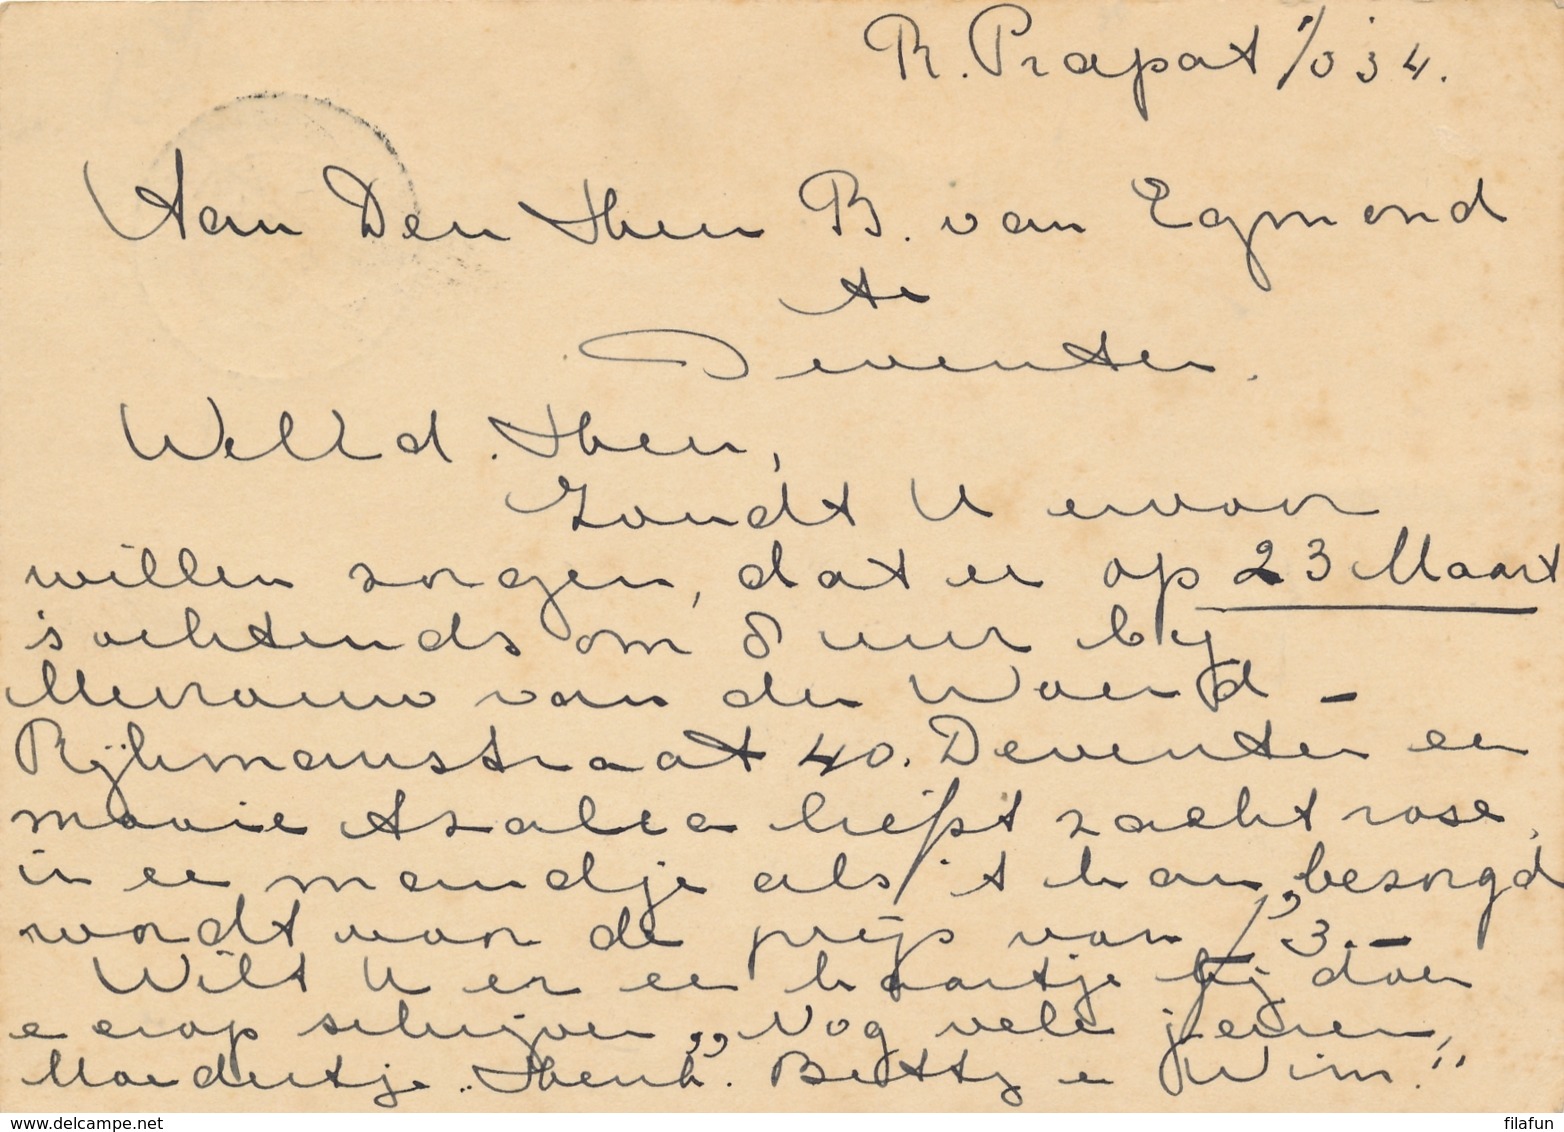 R. Prapat 1/3 '34.
Aan Den Heer B. van Egmond
te
Deventer.
WelEd. Heer,
Zoudt U ervoor
willen zorgen, dat er op 23 Maart
's ochtends om 8 uur bij
Mevrouw van der Waerd -
Rijkmanstraat 40. Deventer een
mooie Azalea liefst zacht rose,
in een mandje als 't kan, bezorgd
wordt voor de prijs van f 3.-
Wilt U er een kaartje bij doen
en erop schrijven „Nog vele jaren,
Moedertje. Henk. Betty en Wim."
www.delcampe.net
filafun